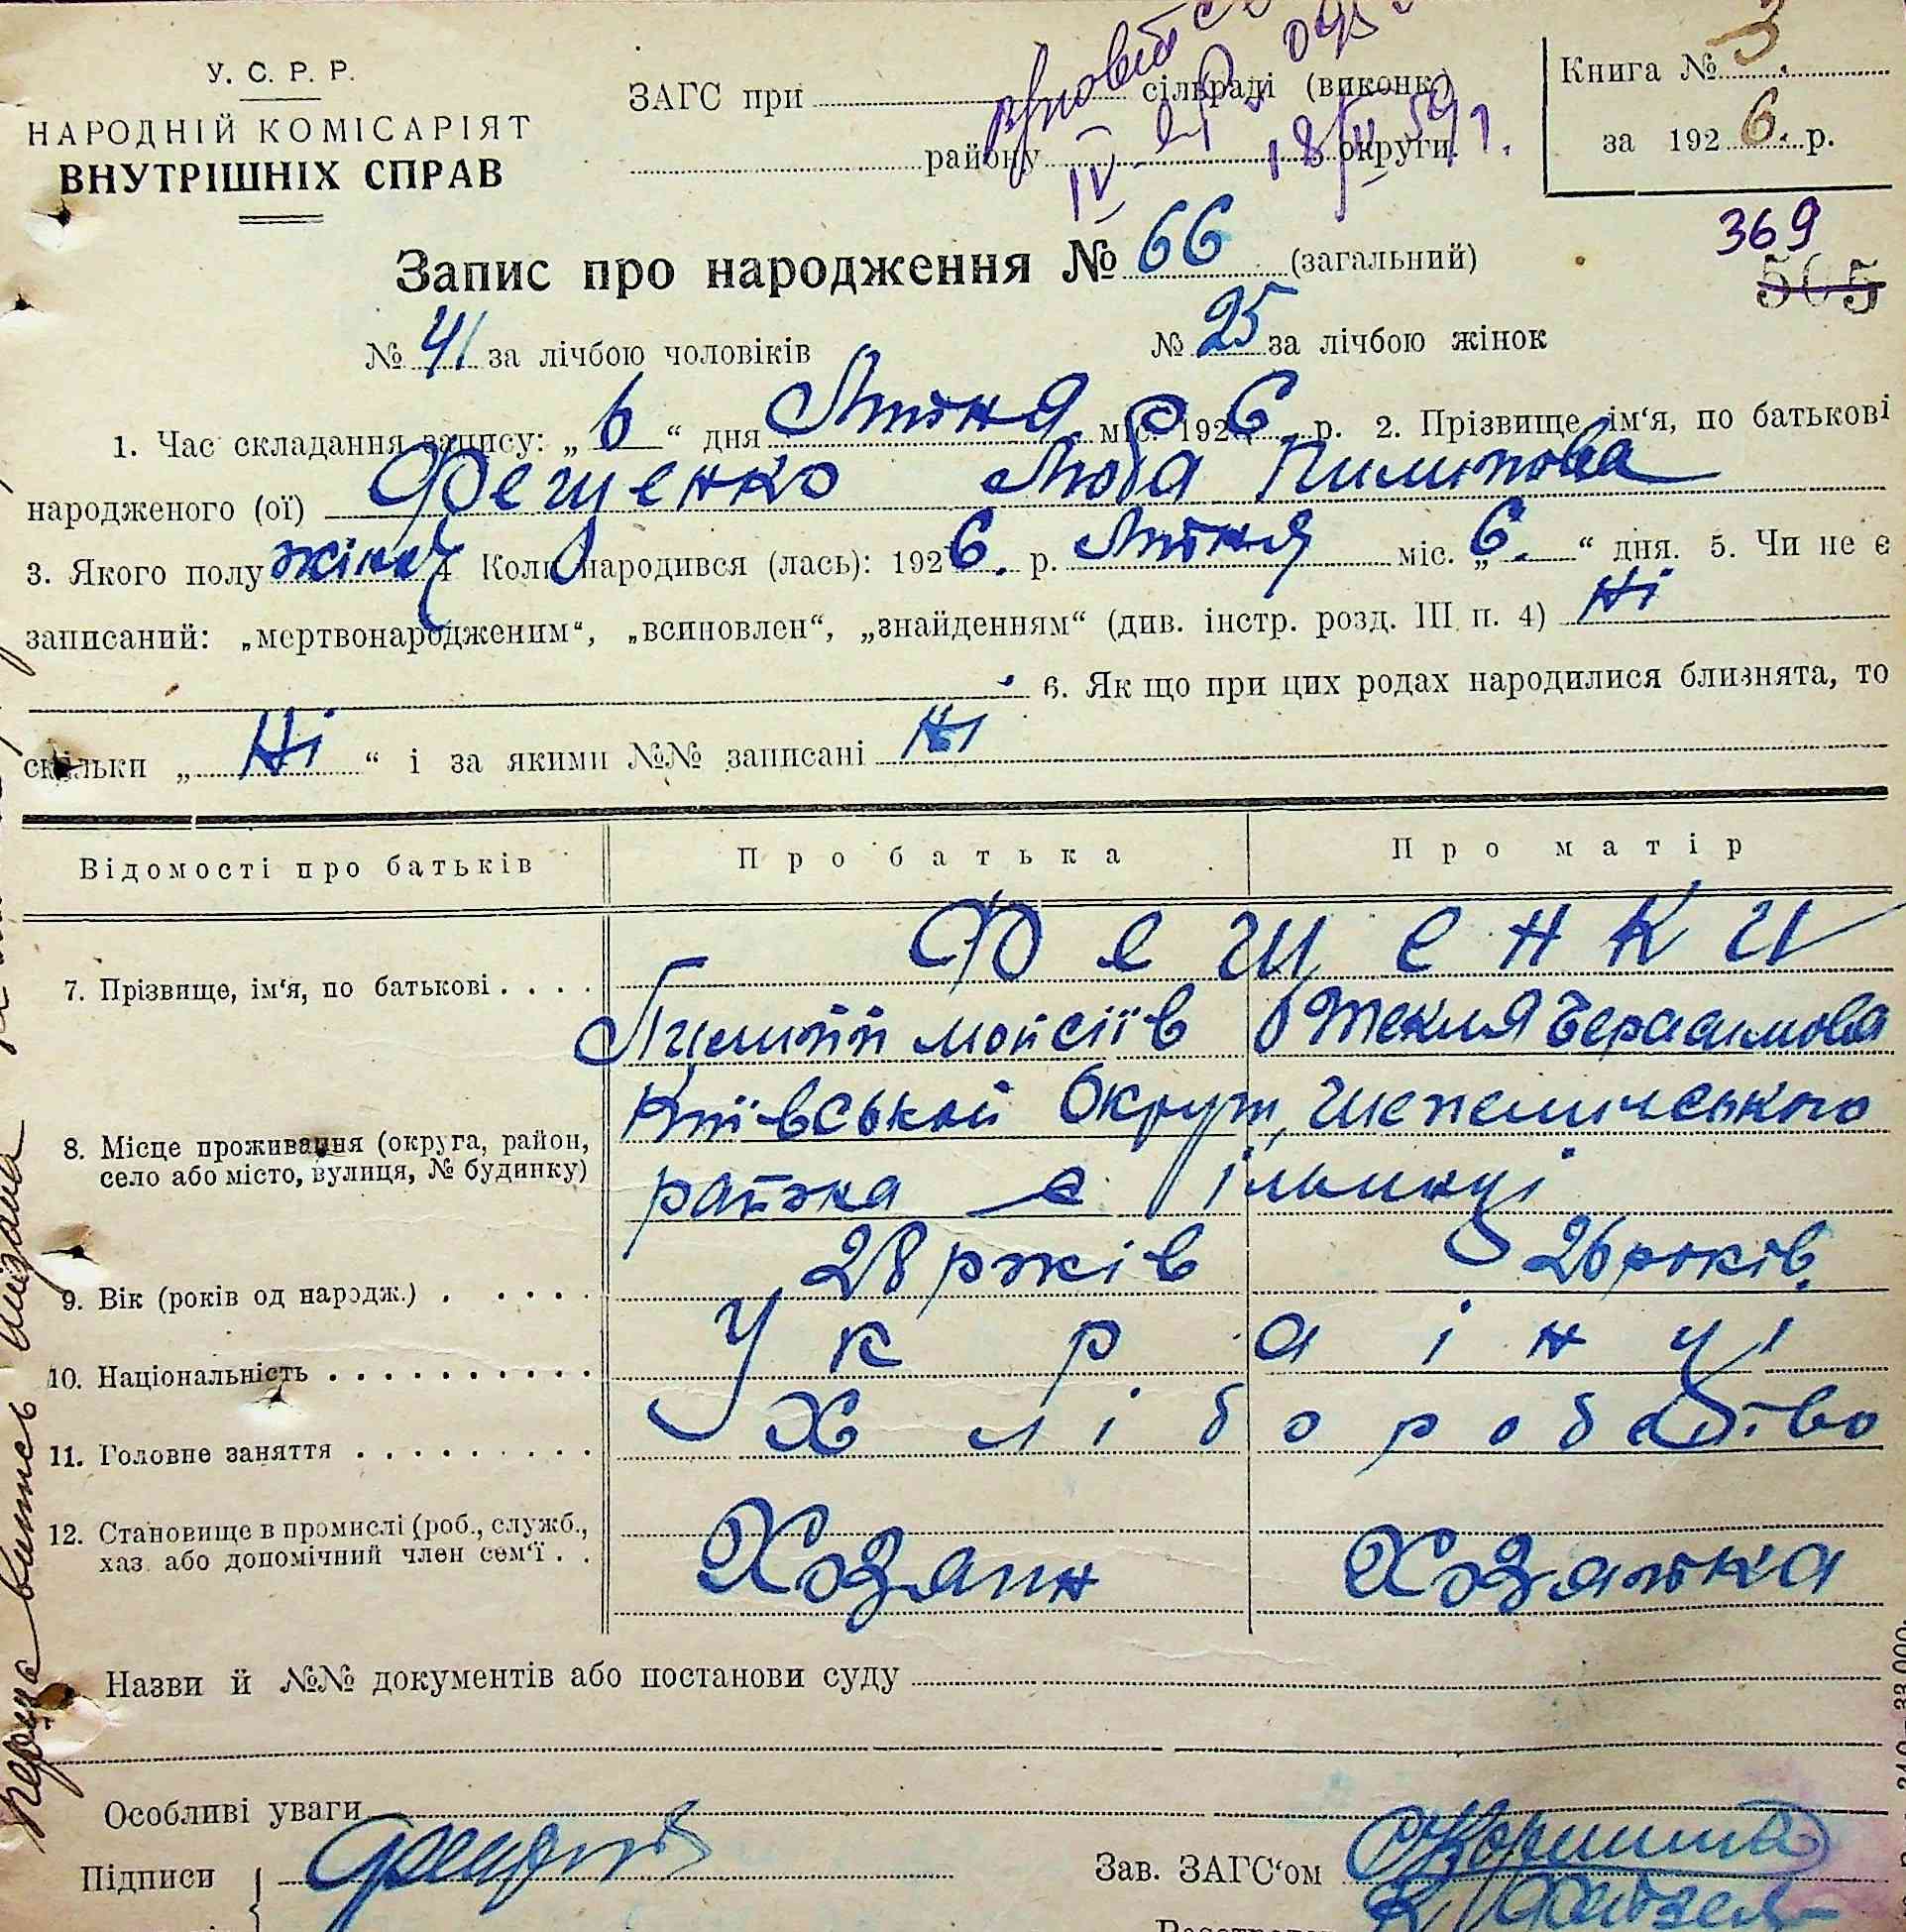 У. С. Р. Р.
НАРОДНІЙ КОМІСАРІЯТ
ВНУТРІШНІХ СПРАВ
ЗАГС при сільраді (виконк)
району округи.
IV 18/II 59 1.
Книга № 3
за 1926. р.
369
505
Запис про народження № 66 (загальний)
№ 41 за лічбою чоловіків № 25 за лічбою жінок
1. Час складання запису: „ 6 “ дня Липня міс. 1926. р. 2. Прізвище ім‘я, по батькові
народженого (ої) Фещенко Люба Пилипова
3. Якого полу жіноч 4 Коли народився (лась): 1926. р. Липня міс. „6.“ дня. 5. Чи не є
записаний: „мертвонародженим“, „всиновлен“, „знайденням“ (див. інстр. розд. III п. 4) Ні
6. Як що при цих родах народилися близнята, то
скільки „ Ні “ і за якими №№ записані Ні
Відомості про батьків Про батька Про матір
7. Прізвище, ім‘я, по батькові Фещенки
Пилип Мойсіїв Текля Герасимова
8. Місце проживання (округа, район, село або місто, вулиця, № будинку) Київської Округи, Шепеличського
района с Ільинці
9. Вік (років од народж.) 28 років 26 років.
10. Національність Українці
11. Головне заняття Хліборобство
12. Становище в промислі (роб., служб., хаз. або допомічний член сем‘ї Хозяин Хозяйка
Назви й №№ документів або постанови суду
Особливі уваги
Підписи
Зав. ЗАГС‘ом